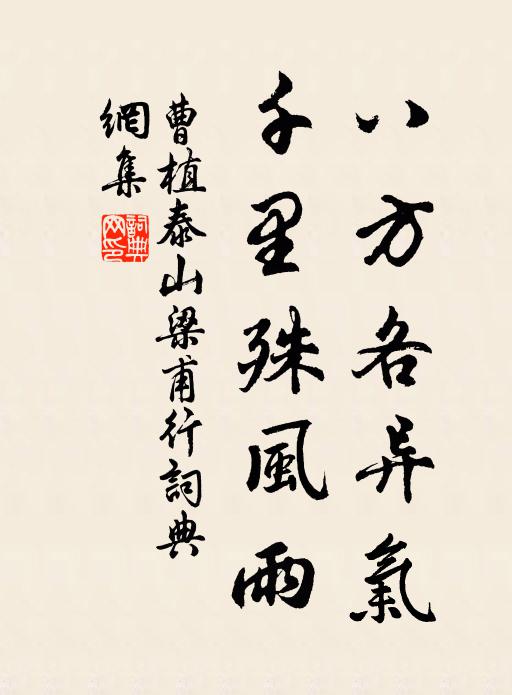 八方各异氣
千里殊風雨
曹植泰山梁甫行詞典
網集
詞典網印